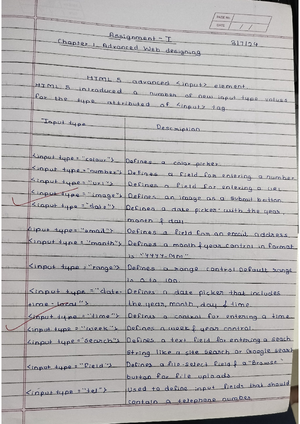 PAGE NO.
DATE
Assignment - I
3/7/24
Chapter 1. Advanced Web designing
HTML 5 advanced <input> element
HTML 5 introduced a number of new input type values
for the type attributed of <input> tag
Input type Description
<input type="colour"> Defines a color picker.
<input type="number"> Defines a field for entering a number
<input type="url"> Defines a field for entering a URL
<input type="image"> Defines an image as a submit button
<input type="date"> Defines a date picker with the year
month & day
<input type="email"> Defines a field for an email address
<input type="month"> Defines a month & year control in format
is "YYYY-MM"
<input type="range"> Defines a range control. Default range
is 0 to 100.
<input type="date- Defines a date picker that includes
time-local"> the year, month, day & time.
<input type="time"> Defines a control for entering a time
<input type="week"> Defines a week & year control.
<input type="search"> Defines a text field for entering a search
string like a site search or Google search
<input type="field"> Defines a file-select field & a "Browse"
button for file uploads.
<input type="tel"> Used to define input fields that should
contain a telephone number